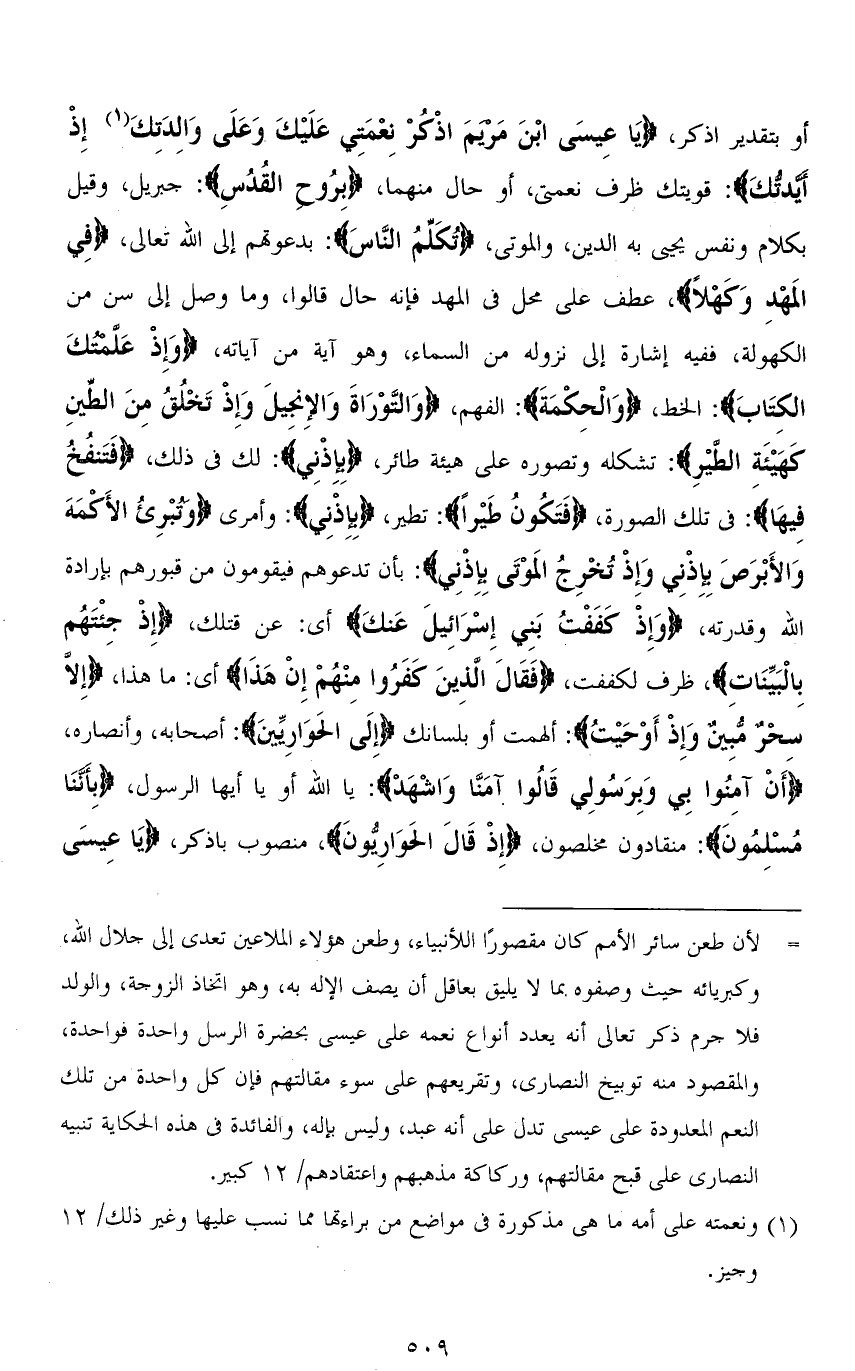 أو بتقدير اذكر، ﴿يَا عِيسَى ابْنَ مَرْيَمَ اذْكُرْ نِعْمَتِي عَلَيْكَ وَعَلَى وَالِدَتِكَ(١) إِذْ
أَيَّدتُّكَ﴾: قويتك ظرف نعمتى، أو حال منهما، ﴿بِرُوحِ القُدُسِ﴾: جبريل، وقيل
بكلام ونفس يحيى به الدين، والموتى، ﴿تُكَلِّمُ النَّاسَ﴾: بدعوتهم إلى الله تعالى، ﴿فِي
المَهْدِ وَكَهْلاً﴾، عطف على محل فى المهد فإنه حال قالوا، وما وصل إلى سن من
الكهولة، ففيه إشارة إلى نزوله من السماء، وهو آية من آياته، ﴿وَإِذْ عَلَّمْتُكَ
الكِتَابَ﴾: الخط، ﴿وَالْحِكْمَةَ﴾: الفهم، ﴿وَالتَّوْرَاةَ وَالإِنجِيلَ وَإِذْ تَخْلُقُ مِنَ الطِّينِ
كَهَيْئَةِ الطَّيْرِ﴾: تشكله وتصوره على هيئة طائر، ﴿بِإِذْنِي﴾: لك فى ذلك، ﴿فَتَنفُخُ
فِيهَا﴾: فى تلك الصورة، ﴿فَتَكُونُ طَيْراً﴾: تطير، ﴿بِإِذْنِي﴾: وأمرى ﴿وَتُبْرِئُ الأَكْمَهَ
وَالأَبْرَصَ بِإِذْنِي وَإِذْ تُخْرِجُ المَوْتَى بِإِذْنِي﴾: بأن تدعوهم فيقومون من قبورهم بإرادة
الله وقدرته، ﴿وَإِذْ كَفَفْتُ بَنِي إِسْرَائِيلَ عَنكَ﴾ أى: عن قتلك، ﴿إِذْ جِئْتَهُم
بِالْبَيِّنَاتِ﴾، ظرف لكففت، ﴿فَقَالَ الَّذِينَ كَفَرُوا مِنْهُمْ إِنْ هَذَا﴾ أى: ما هذا، ﴿إِلاَّ
سِحْرٌ مُّبِينٌ وَإِذْ أَوْحَيْتُ﴾: ألهمت أو بلسانك ﴿إِلَى الحَوَارِيِّينَ﴾: أصحابه، وأنصاره،
﴿أَنْ آمِنُوا بِي وَبِرَسُولِي قَالُوا آمَنَّا وَاشْهَدْ﴾: يا الله أو يا أيها الرسول، ﴿بِأَنَّنَا
مُسْلِمُونَ﴾: منقادون مخلصون، ﴿إِذْ قَالَ الحَوَارِيُّونَ﴾، منصوب باذكر، ﴿يَا عِيسَى
= لأن طعن سائر الأمم كان مقصورًا اللأنبياء، وطعن هؤلاء الملاعين تعدى إلى جلال الله،
وكبريائه حيث وصفوه بما لا يليق بعاقل أن يصف الإله به، وهو اتخاذ الزوجة، والولد
فلا جرم ذكر تعالى أنه يعدد أنواع نعمه على عيسى بحضرة الرسل واحدة فواحدة،
والمقصود منه توبيخ النصارى، وتقريعهم على سوء مقالتهم فإن كل واحدة من تلك
النعم المعدودة على عيسى تدل على أنه عبد، وليس بإله، والفائدة فى هذه الحكاية تنبيه
النصارى على قبح مقالتهم، وركاكة مذهبهم واعتقادهم/ ١٢ كبير.
(١) ونعمته على أمه ما هى مذكورة فى مواضع من براءتها مما نسب عليها وغير ذلك/ ١٢
وجيز.
٥٠٩